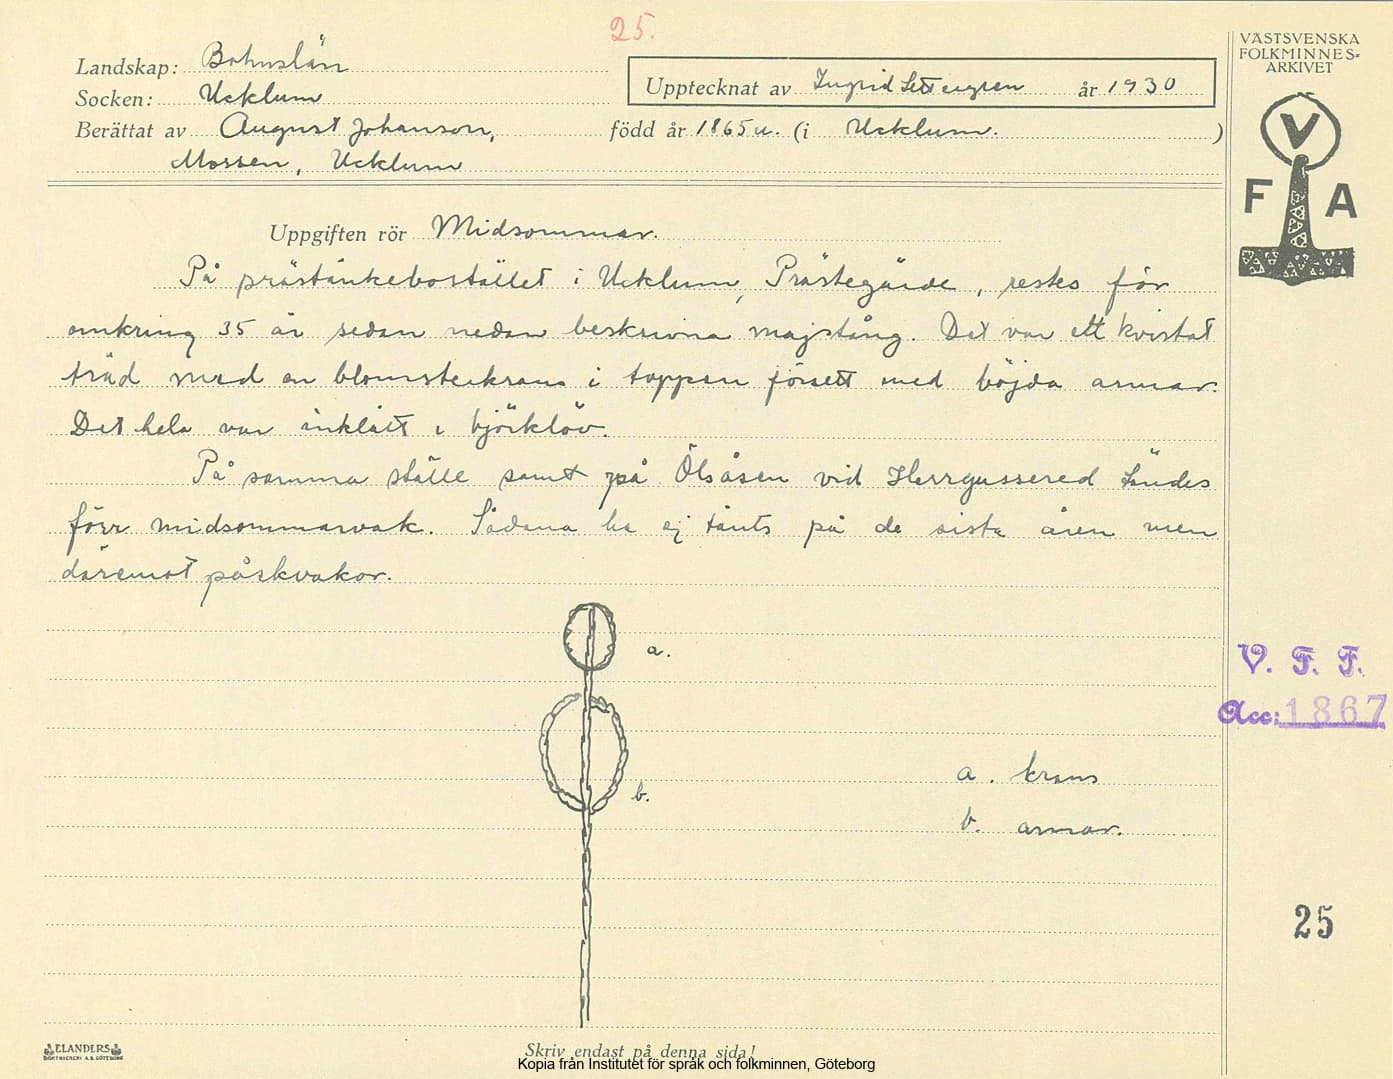 25.
VÄSTSVENSKA
FOLKMINNES-
ARKIVET
Landskap: Bohuslän
Upptecknat av Ingrid Settergren år 1930
Socken: Ucklum
Berättat av August Johanson, född år 1865 (i Ucklum.)
Mossen, Ucklum
V
F A
Uppgiften rör Midsommar.
På prästänkebostället i Ucklum, Prästegärde, restes för
omkring 35 år sedan nedan beskrivna majstång. Det var ett kvistat
träd med en blomsterkrans i toppen försett med böjda armar.
Det hela var inklätt i björklöv.
På samma ställe samt på Ölsåsen vid Herrgussered tändes
förr midsommarvak. Sådana ha ej tänts på de sista åren men
däremot påskvakor.
a.
b.
a. krans
b. armar.
V. F. F.
Acc: 1867
25
ELANDERS
BOKTRYCKERI A.B. GÖTEBORG
Skriv endast på denna sida!
Kopia från Institutet för språk och folkminnen, Göteborg